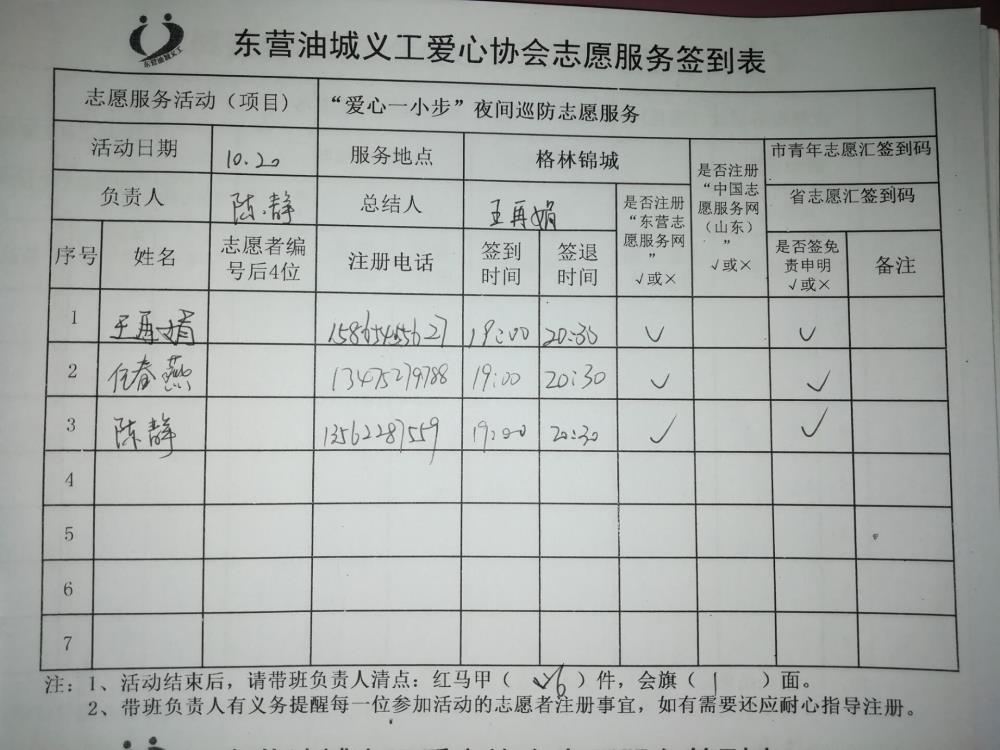 东营油城义工
东营油城义工爱心协会志愿服务签到表
志愿服务活动（项目） “爱心一小步”夜间巡防志愿服务
活动日期 10.20 服务地点 格林锦城 是否注册“中国志愿服务网（山东）” √或× 市青年志愿汇签到码
负责人 陈静 总结人 王再娟 是否注册“东营志愿服务网” √或× 省志愿汇签到码
序号 姓名 志愿者编号后4位 注册电话 签到时间 签退时间 是否签免责申明 √或× 备注
1 王再娟 15865455627 19:00 20:30 ✓ ✓
2 任春燕 13475279788 19:00 20:30 ✓ ✓
3 陈静 13562287559 19:00 20:30 ✓ ✓
4
5
6
7
注：1、活动结束后，请带班负责人清点：红马甲（ 6 ）件，会旗（ 1 ）面。
2、带班负责人有义务提醒每一位参加活动的志愿者注册事宜，如有需要还应耐心指导注册。